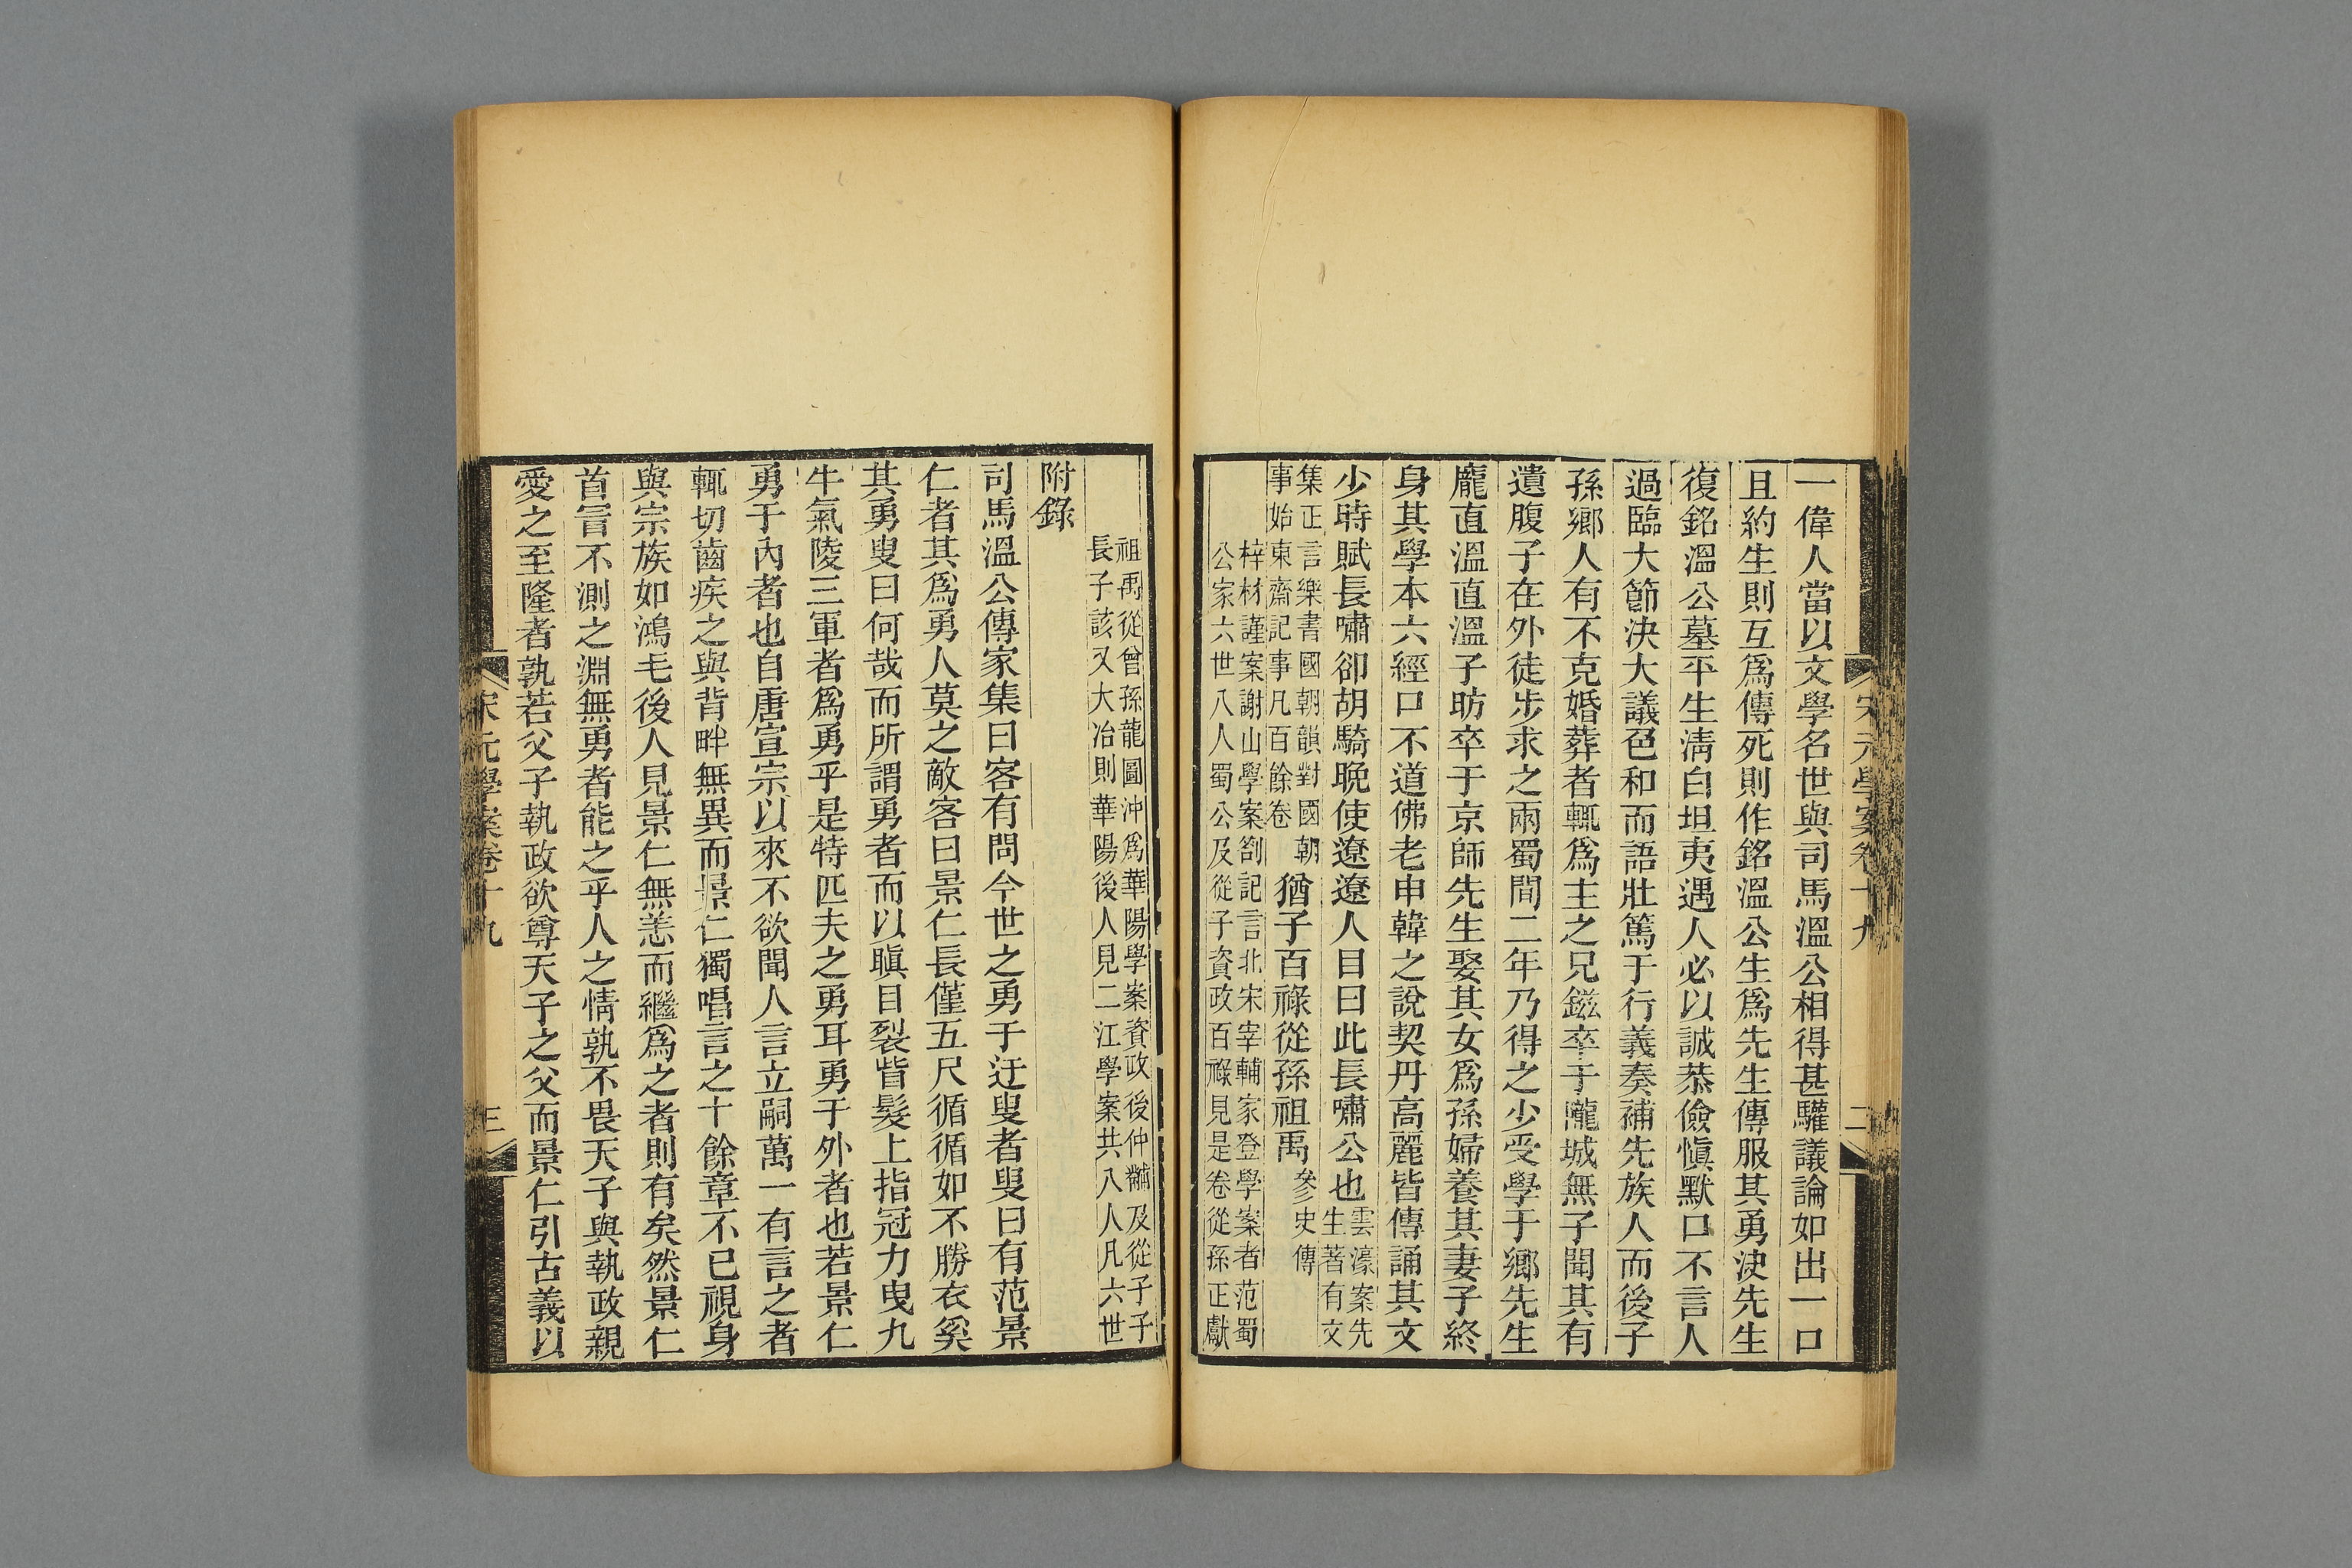 宋元學案卷十九
二
一偉人當以文學名世與司馬溫公相得甚驩議論如出一口
且約生則互爲傳死則作銘溫公生爲先生傳服其勇決先生
復銘溫公墓平生淸白坦夷遇人必以誠恭儉愼默口不言人
過臨大節決大議色和而語壯篤于行義奏補先族人而後子
孫鄉人有不克婚葬者輒爲主之兄鎡卒于隴城無子聞其有
遺腹子在外徒步求之兩蜀間二年乃得之少受學于鄉先生
龐直溫直溫子昉卒于京師先生娶其女爲孫婦養其妻子終
身其學本六經口不道佛老申韓之說契丹高麗皆傳誦其文
少時賦長嘯卻胡騎晚使遼遼人目曰此長嘯公也雲濠案先
生著有文
集正言樂書國朝韻對國朝
事始東齋記事凡百餘卷猶子百祿從孫祖禹參史傳
梓材謹案謝山學案劄記言北宋宰輔家登學案者范蜀
公家六世八人蜀公及從子資政百祿見是卷從孫正獻
祖禹從曾孫龍圖沖爲華陽學案資政後仲黼及從子子
長子該又大冶則華陽後人見二江學案共八人凡六世
附錄
司馬溫公傳家集曰客有問今世之勇于迂叟者叟曰有范景
仁者其爲勇人莫之敵客曰景仁長僅五尺循循如不勝衣奚
其勇叟曰何哉而所謂勇者而以瞋目裂眥髮上指冠力曳九
牛氣陵三軍者爲勇乎是特匹夫之勇耳勇于外者也若景仁
勇于內者也自唐宣宗以來不欲聞人言立嗣萬一有言之者
輒切齒疾之與背畔無異而景仁獨唱言之十餘章不已視身
與宗族如鴻毛後人見景仁無恙而繼爲之者則有矣然景仁
首冒不測之淵無勇者能之乎人之情孰不畏天子與執政親
愛之至隆者孰若父子執政欲尊天子之父而景仁引古義以
宋元學案卷十九
三